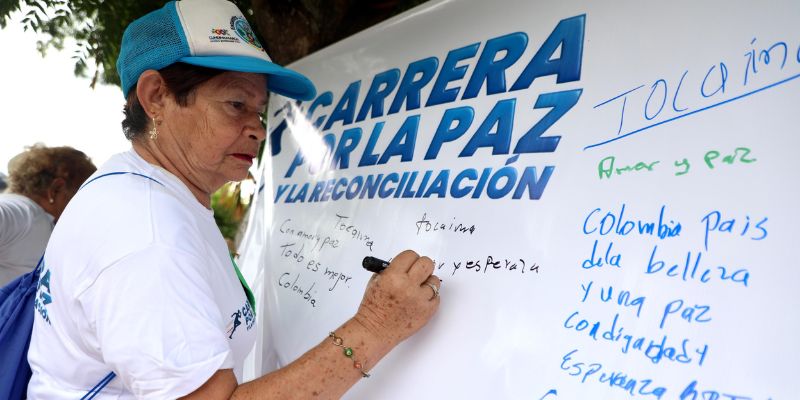 CARRERA
POR LA PAZ
Y LA RECONCILIACIÓN
Tocaima
Con amor y paz
Todo es mejor.
Colombia
Tocaima
y esperaza
Tocaima
Amor y paz
Colombia pais
dela belleza
y una paz
Con digarda y
Esperanza